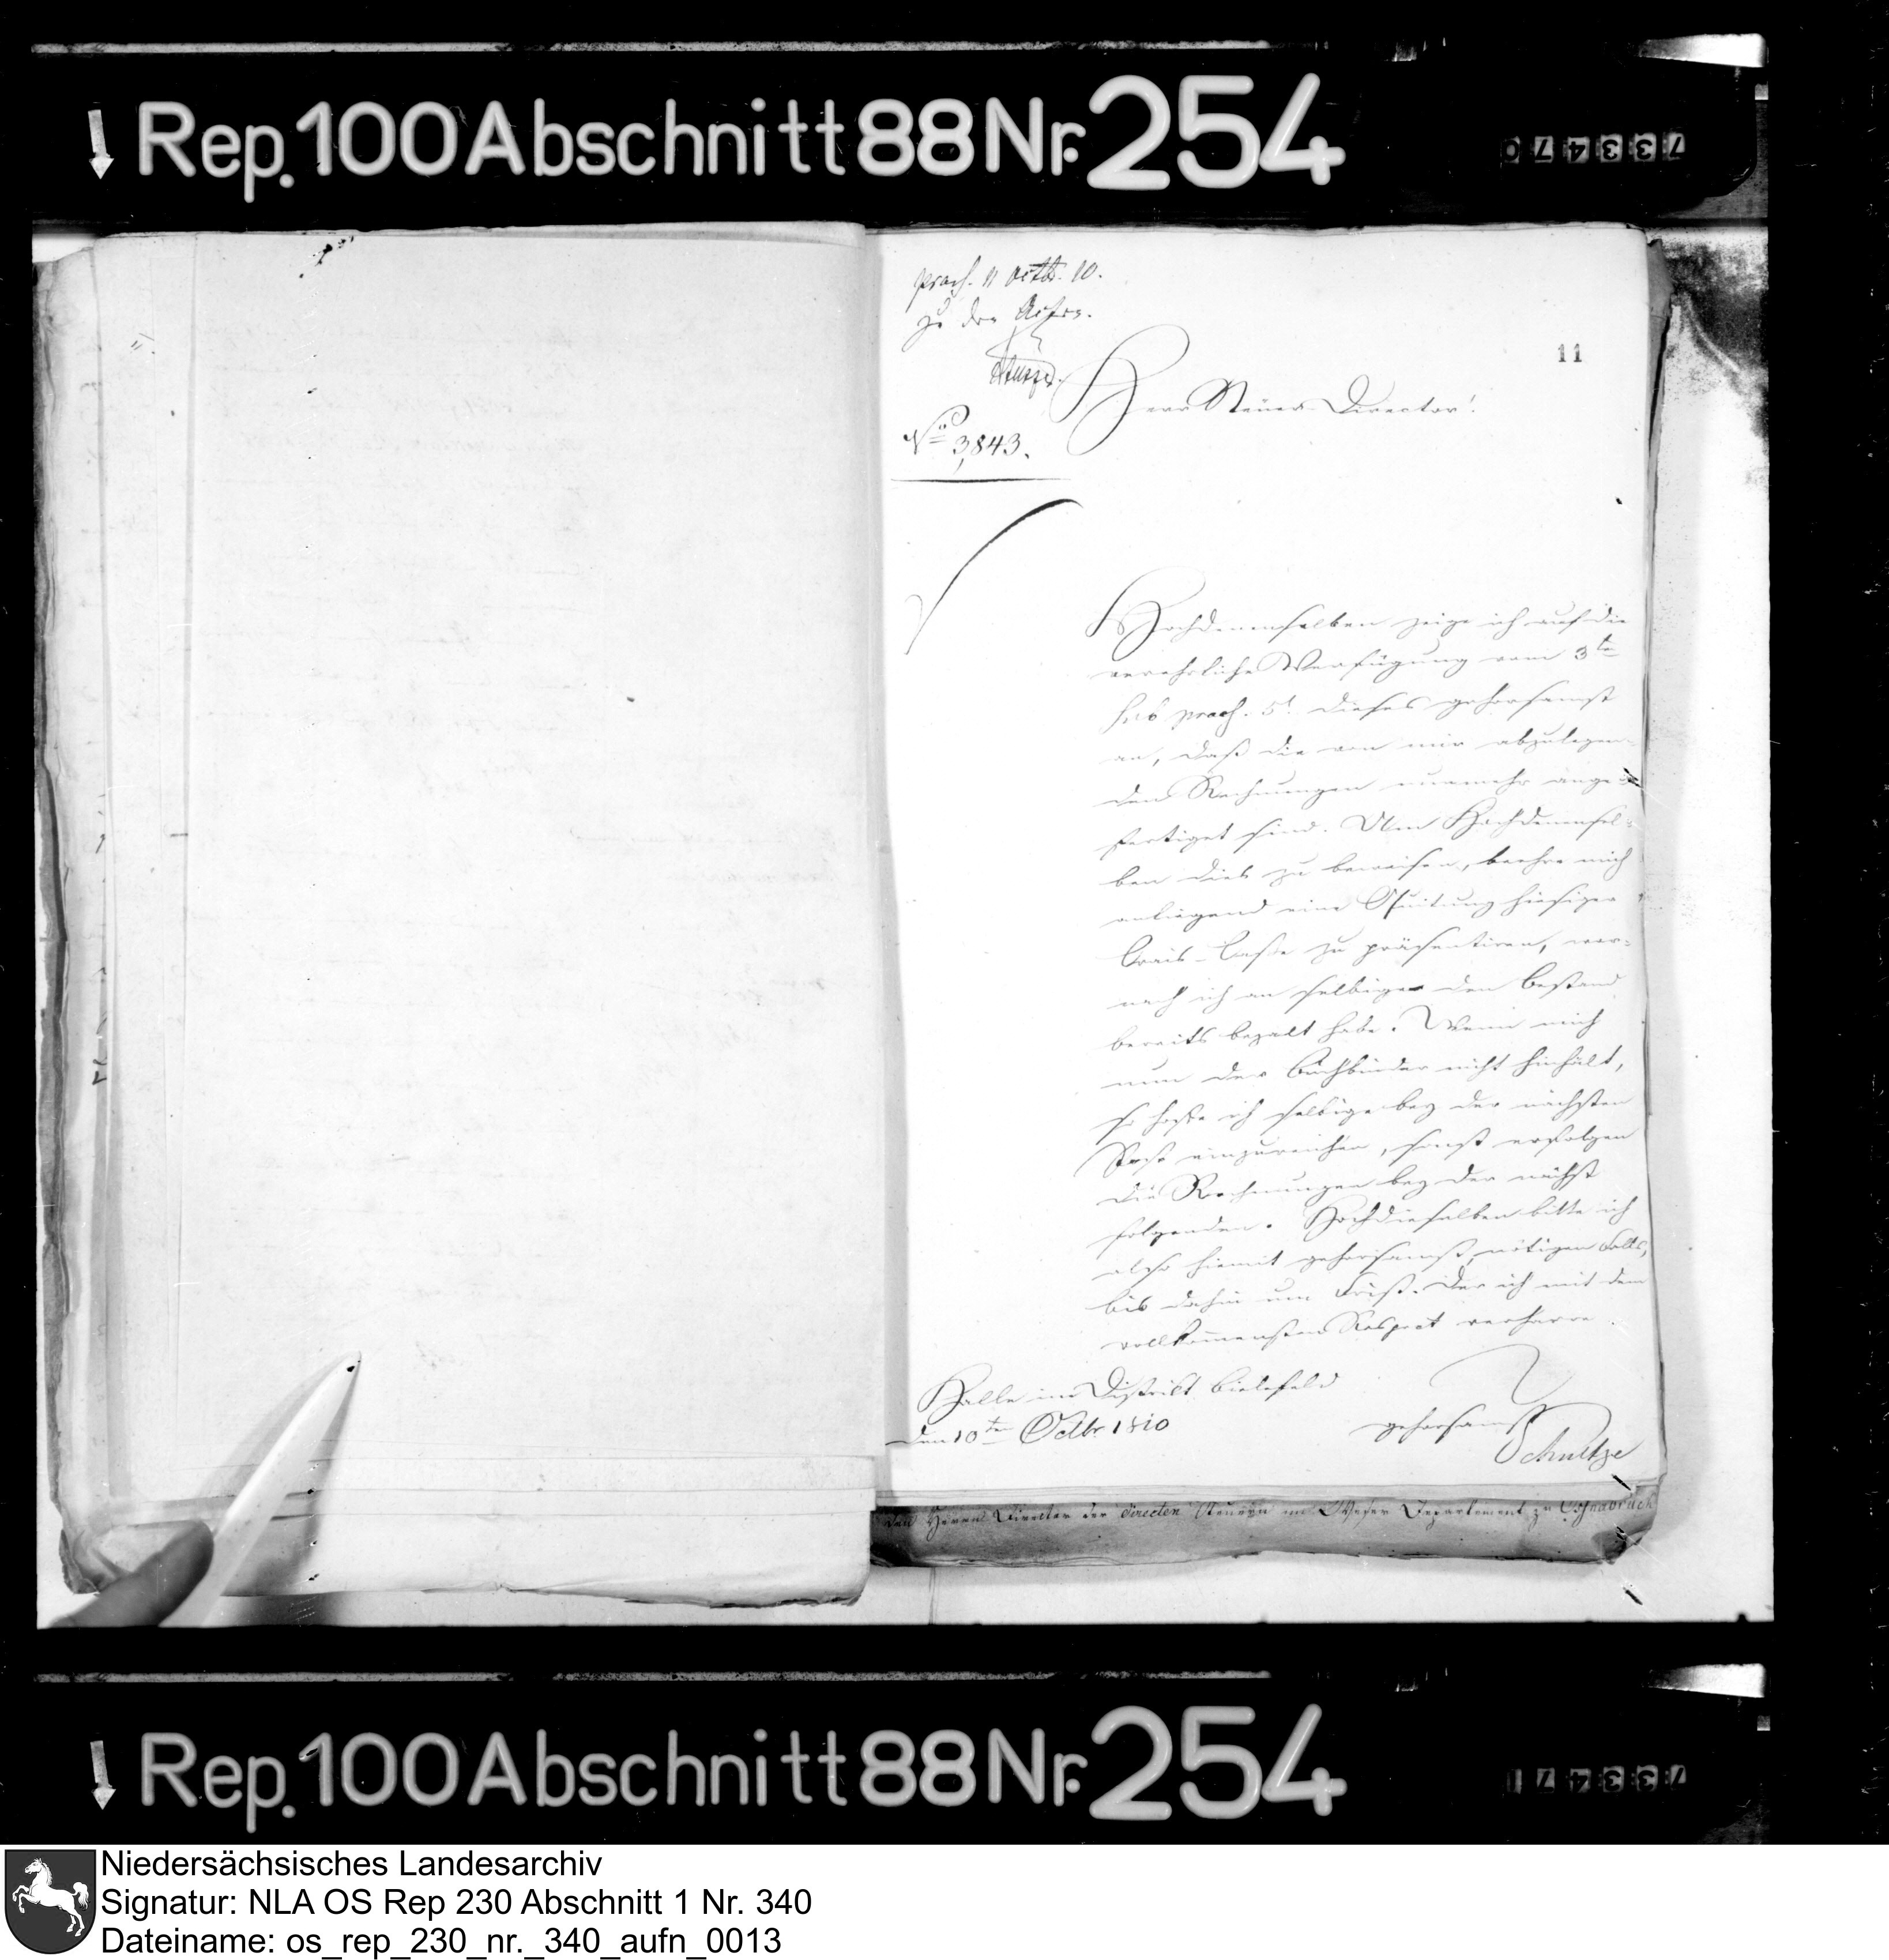 Rep. 100 Abschnitt 88 Nr. 254
733470
praes. 11 Octb. 10.
zu den Acten.
11
Herr Steuer-Director!
No 3,843.
Hochdenenselben zeige ich auf die
verehrliche Verfügung vom 3te
sub praes. 5t dieses gehorsamst
an, daß die von mir abzulegen-
den Rechnungen nunmehr ange-
fertiget sind. Um Hochdenensel-
ben dies zu beweisen, beehre mich
anliegend eine Quitung hiesiger
Crais-Casse zu präsentiren, wor-
nach ich an selbige den Bestand
bereits bezalt habe. Wenn mich
nun der Buchbinder nicht hinhält,
so hoffe ich selbige bey der nächsten
Post einzureichen, sonst erfolgen
die Rechnungen bey der nächst
folgenden. Hochdieselben bitte ich
also hiemit gehorsamst, nötigen Falls,
bis dahin um Frist. Der ich mit dem
vollkommensten Respect verharre
Halle im District Bielefeld
den 10ten Octbr 1810
gehorsamst
Schultze
den Herrn Director der directen Steuern im Weser Departement zu Osnabrück
Rep. 100 Abschnitt 88 Nr. 254
733471
Niedersächsisches Landesarchiv
Signatur: NLA OS Rep 230 Abschnitt 1 Nr. 340
Dateiname: os_rep_230_nr._340_aufn_0013